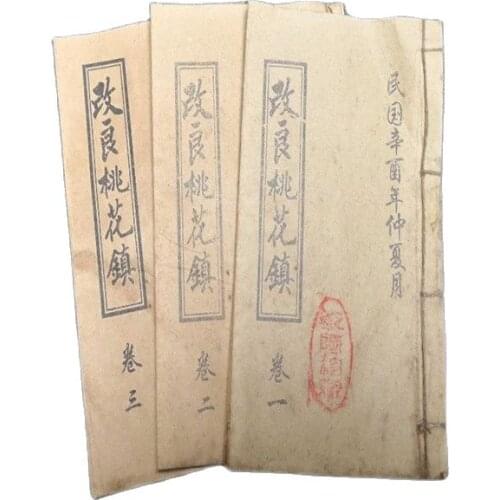 民国辛酉年仲夏月
改良桃花鎮
卷一
改良桃花鎮
卷二
改良桃花鎮
卷三